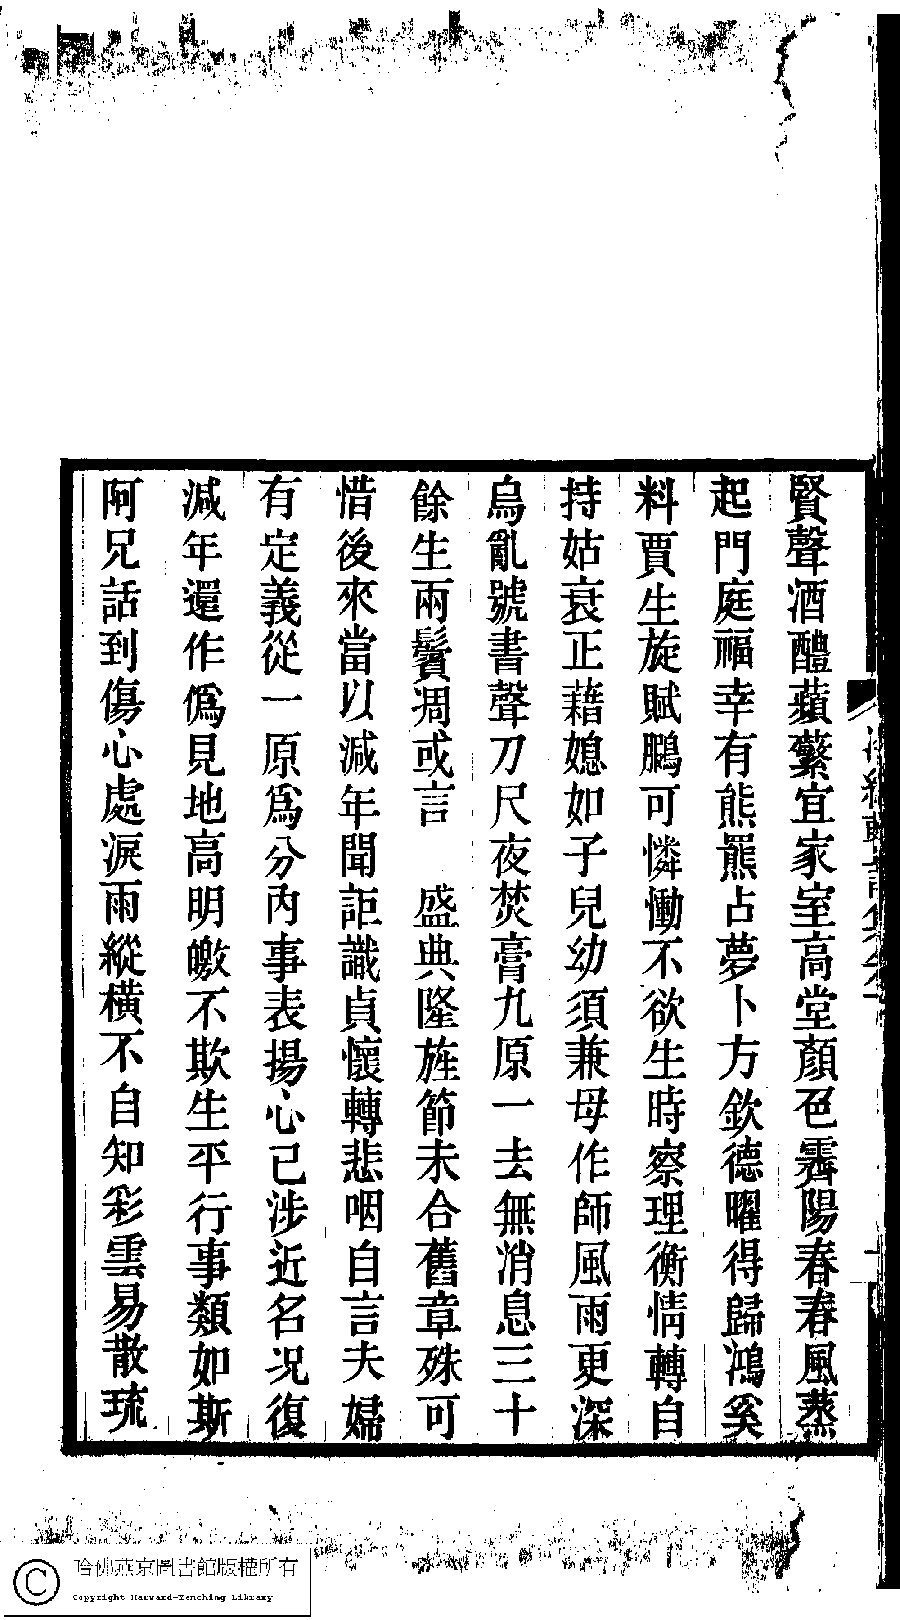 賢聲酒醴蘋蘩宜家室高堂顏色霽陽春春風蒸
起門庭福幸有熊羆占夢卜方欽德曜得歸鴻奚
料賈生旋賦鵩可憐慟不欲生時察理衡情轉自
持姑衰正藉媳如子兒幼須兼母作師風雨更深
烏亂號書聲刀尺夜焚膏九原一去無消息三十
餘生兩鬢凋或言　盛典隆旌節未合舊章殊可
惜後來當以減年聞詎識貞懷轉悲咽自言夫婦
有定義從一原爲分內事表揚心已涉近名况復
減年還作僞見地高明皦不欺生平行事類如斯
阿兄話到傷心處淚雨縱橫不自知彩雲易散琉
哈佛燕京圖書館版權所有
Copyright Harvard-Yenching Library